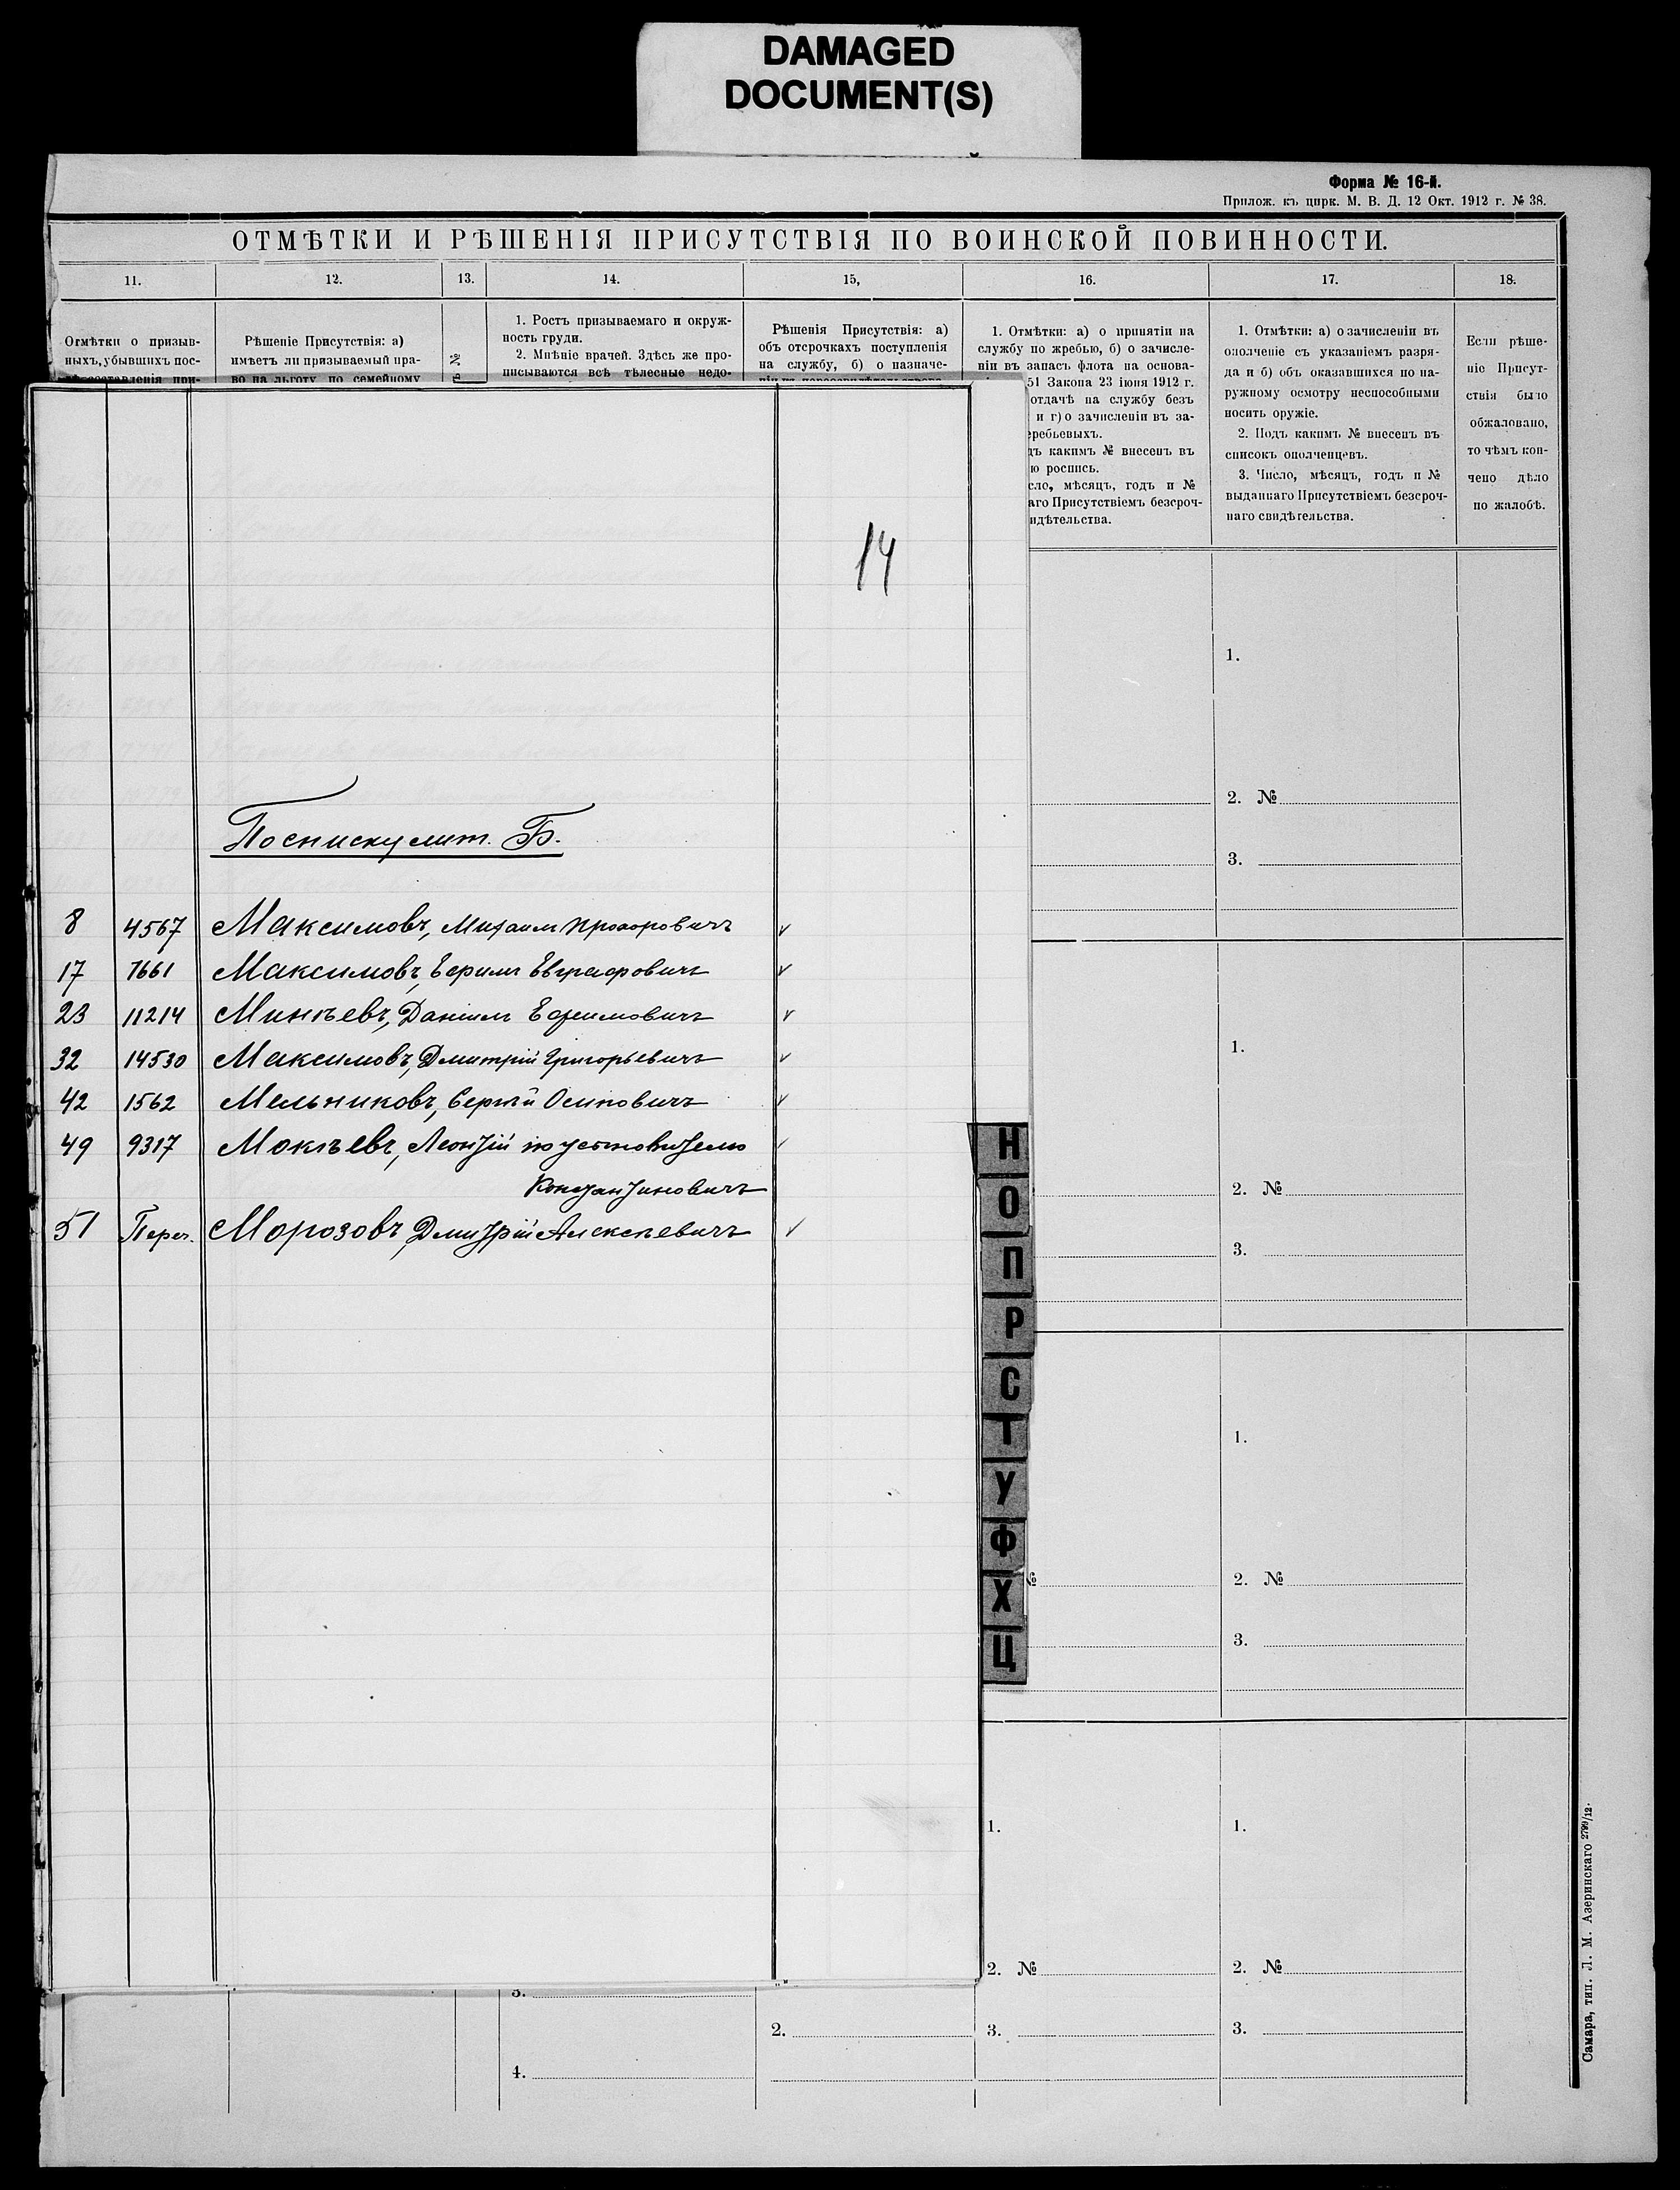 DAMAGED
DOCUMENT(S)
Форма № 16-й.
Прилож. къ цирк. М. В. Д. 12 Окт. 1912 г. № 38.
ОТМѢТКИ И РѢШЕНІЯ ПРИСУТСТВІЯ ПО ВОИНСКОЙ ПОВИННОСТИ.
11. 12. 13. 14. 15, 16. 17. 18.
Отмѣтки о призыв-
ныхъ, убывшихъ пос-
составленія при-
Рѣшеніе Присутствія: а)
имѣетъ ли призываемый пра-
во на льготу по семейному
№
1. Ростъ призываемаго и окруж-
ность груди.
2. Мнѣніе врачей. Здѣсь же про-
писываются всѣ тѣлесные недо-
Рѣшенія Присутствія: а)
объ отсрочкахъ поступленія
на службу, б) о назначе-
1. Отмѣтки: а) о принятіи на
службу по жребью, б) о зачисле-
ніи въ запасъ флота на основа-
51 Закона 23 іюня 1912 г.
отдачѣ на службу безъ
и г) о зачисленіи въ за-
ребьевыхъ.
ъ какимъ № внесенъ въ
ю роспись.
сло, мѣсяцъ, годъ и №
аго Присутствіемъ безсроч-
идѣтельства.
1. Отмѣтки: а) о зачисленіи въ
ополченіе съ указаніемъ разря-
да и б) объ оказавшихся по на-
ружному осмотру неспособными
носить оружіе.
2. Подъ какимъ № внесенъ въ
списокъ ополченцевъ.
3. Число, мѣсяцъ, годъ и №
выданнаго Присутствіемъ безсроч-
наго свидѣтельства.
Если рѣше-
ніе Присут-
ствія было
обжаловано,
то чѣмъ кон-
чено дѣло
по жалобѣ.
14
По списку лит. Б.
8 4567 Максимовъ, Михаилъ Прохоровичъ
17 7661 Максимовъ, Ефимъ Евграфовичъ
23 11214 Минѣевъ, Даніилъ Ефимовичъ
32 14530 Максимовъ, Дмитрій Григорьевичъ
42 1562 Мельниковъ, Сергѣй Осиповичъ
49 9317 Мокѣевъ, Леонтій по усыновителю
Константиновичъ
51 Переч. Морозовъ, Дмитрій Алексѣевичъ
Н
О
П
Р
С
Т
У
Ф
Х
Ц
1.
2. №
3.
1.
2. №
3.
1.
№ 2. №
3.
1. 1.
2. № 2. №
3.
2. 3. 3.
4.
Самара, тип. Л. М. Азеринскаго 2799/12.